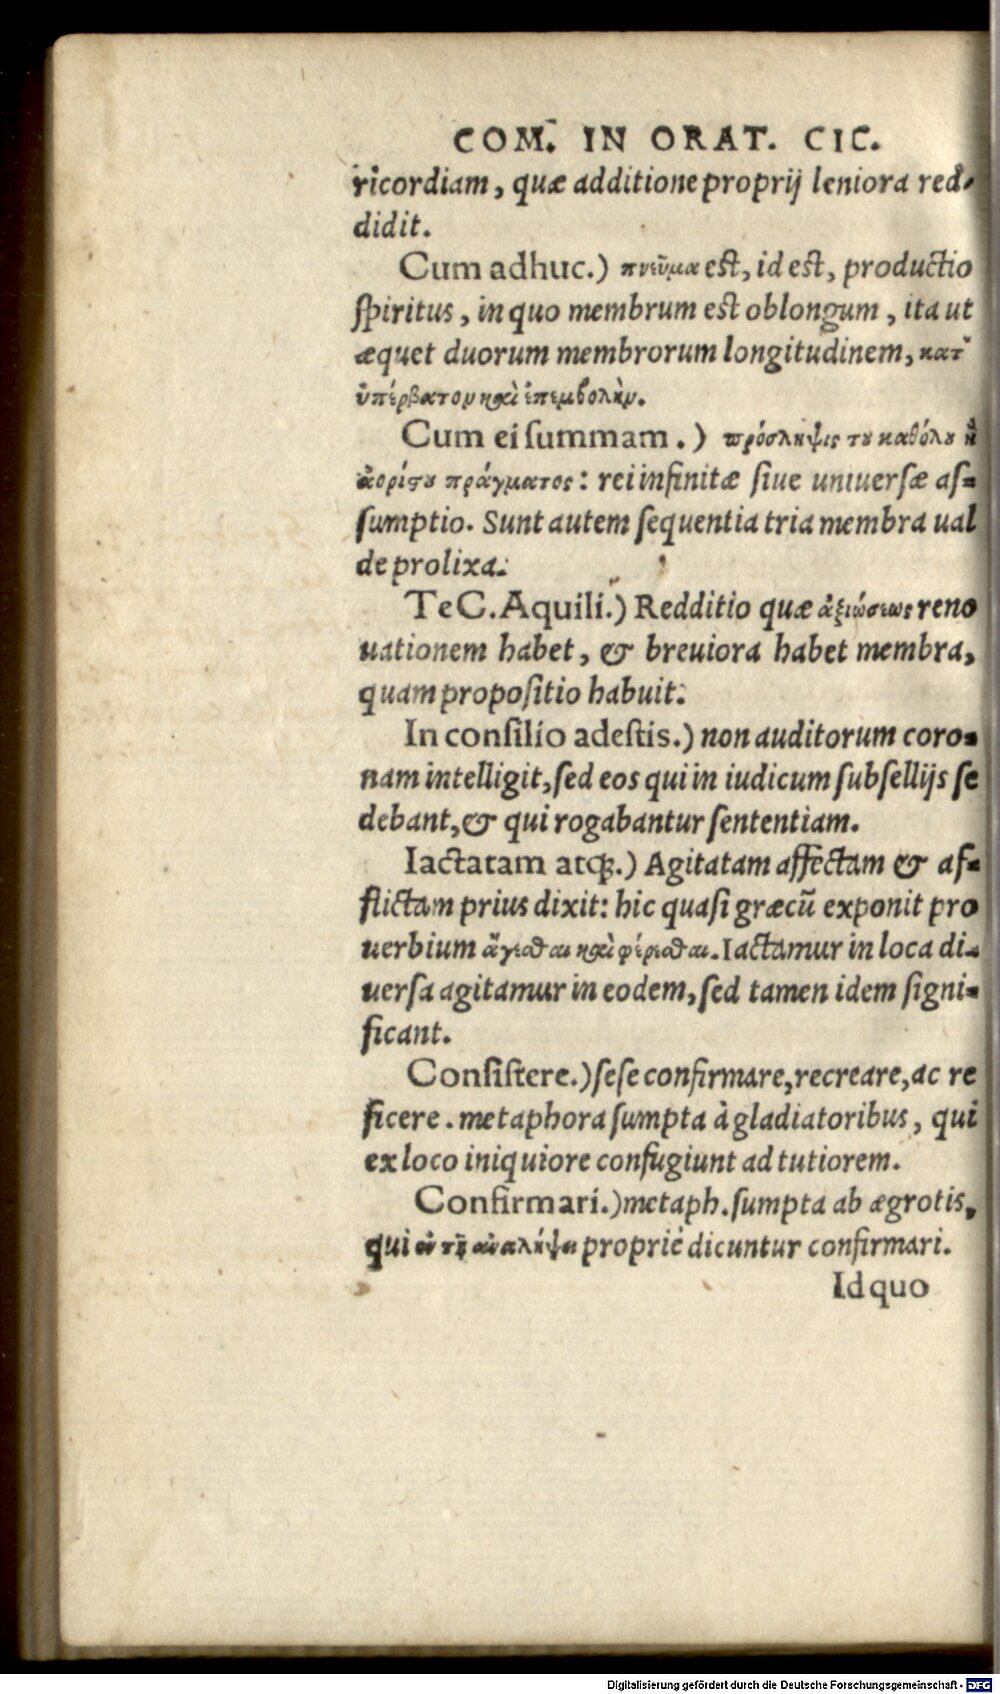 COM. IN ORAT. CIC.
ricordiam, quæ additione proprij leniora red-
didit.
Cum adhuc.) πνεῦμα est, id est, productio
spiritus, in quo membrum est oblongum, ita ut
æquet duorum membrorum longitudinem, κατ'
ὑπέρβατον καὶ ἐπεμβολὴν.
Cum ei summam.) πρόσληψις τοῦ καθόλου ἢ
ἀορίστου πράγματος: rei infinitæ siue uniuersæ as-
sumptio. Sunt autem sequentia tria membra ual
de prolixa.
Te C. Aquili.) Redditio quæ ἀξιώσεως reno
uationem habet, & breuiora habet membra,
quam propositio habuit.
In consilio adestis.) non auditorum coro-
nam intelligit, sed eos qui in iudicum subsellijs se
debant, & qui rogabantur sententiam.
Iactatam atq;.) Agitatam affectam & af-
flictam prius dixit: hic quasi græcū exponit pro
uerbium ἄγεσθαι καὶ φέρεσθαι. Iactamur in loca di-
uersa agitamur in eodem, sed tamen idem signi-
ficant.
Consistere.) sese confirmare, recreare, ac re
ficere. metaphora sumpta à gladiatoribus, qui
ex loco iniquiore confugiunt ad tutiorem.
Confirmari.) metaph. sumpta ab ægrotis,
qui ἐν τῇ ἀναλήψει propriè dicuntur confirmari.
Id quo
Digitalisierung gefördert durch die Deutsche Forschungsgemeinschaft - DFG